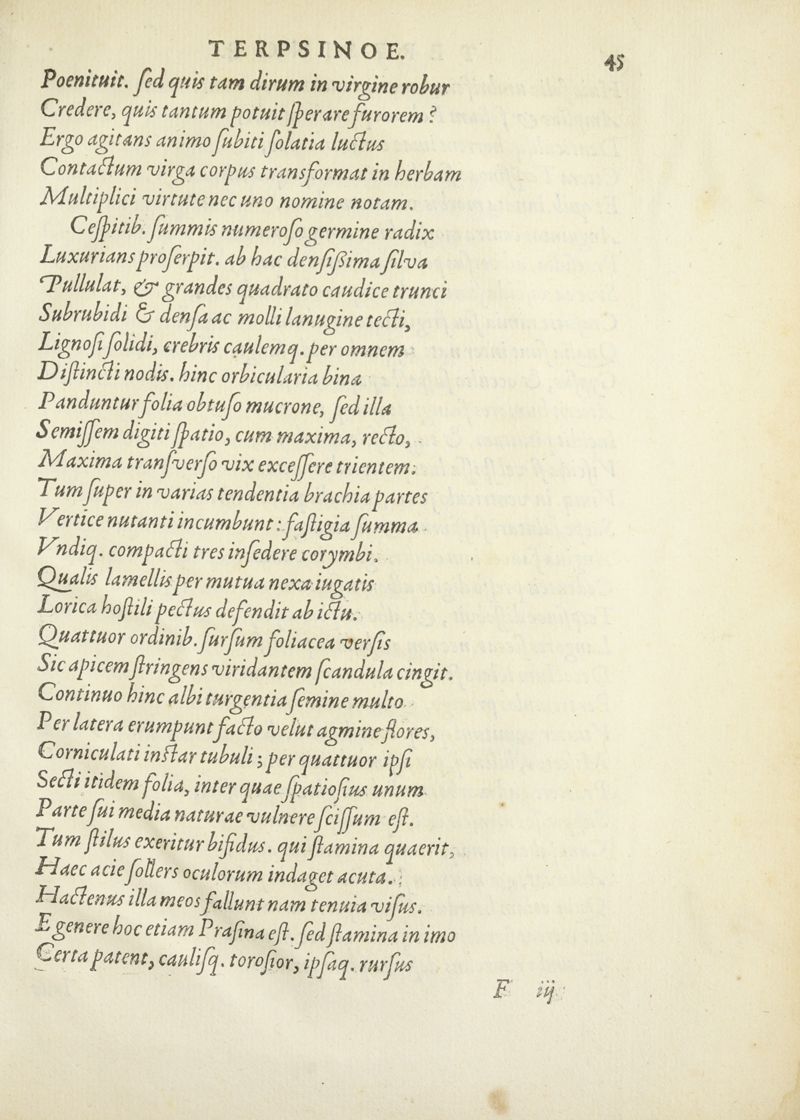 TERPSINOE.
45
Poenituit. ſed quis tam dirum in virgine robur
Credere, quis tantum potuit ſperare furorem?
Ergo agitans animo ſubiti ſolatia luctus
Contactum virga corpus transformat in herbam
Multiplici virtute nec uno nomine notam.
Ceſpitib. ſummis numeroſo germine radix
Luxurians proſerpit. ab hac denſiſſima ſilva
Pullulat, & grandes quadrato caudice trunci
Subrubidi & denſa ac molli lanugine tecti,
Lignoſi ſolidi, crebris caulemq. per omnem
Diſtincti nodis. hinc orbicularia bina
Panduntur folia obtuſo mucrone, ſed illa
Semiſſem digiti ſpatio, cum maxima, recto,
Maxima tranſverſo vix exceſſere trientem.
Tum ſuper in varias tendentia brachia partes
Vertice nutanti incumbunt: faſtigia ſumma
Vndiq. compacti tres inſedere corymbi.
Qualis lamellis per mutua nexa iugatis
Lorica hoſtili pectus defendit ab ictu.
Quattuor ordinib. ſurſum foliacea verſis
Sic apicem ſtringens viridantem ſcandula cingit.
Continuo hinc albi turgentia ſemine multo
Per latera erumpunt facto velut agmine flores,
Corniculati inſtar tubuli; per quattuor ipſi
Secti itidem folia, inter quae ſpatioſius unum
Parte ſui media naturae vulnere ſciſſum eſt.
Tum ſtilus exeritur bifidus. qui ſtamina quaerit,
Haec acie ſollers oculorum indaget acuta.
Hactenus illa meos fallunt nam tenuia viſus.
E genere hoc etiam Praſina eſt. ſed ſtamina in imo
Certa patent, cauliſq. toroſior, ipſaq. rurſus
F iij